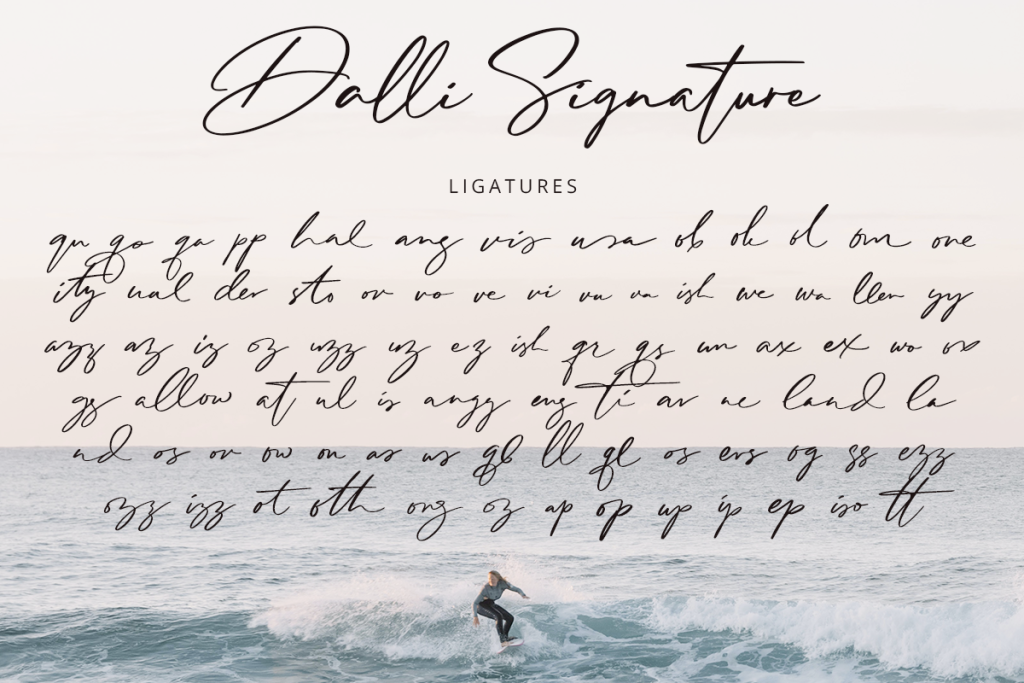 Dalli Signature
LIGATURES
qu go qa pp hal ang vis usa ob ok ol om one
ity ual der sto or vo ve vi vu va ish we wa llen yy
azz az iz oz uzz uz ez ish gr gs un ax ex wo ox
gs allow at ul is angg eng ti ar ue land la
nd os or ow on as us gb ll gl os ers og ss ezz
ozz izz ot oth ong oz ap op up ip ep iso tt